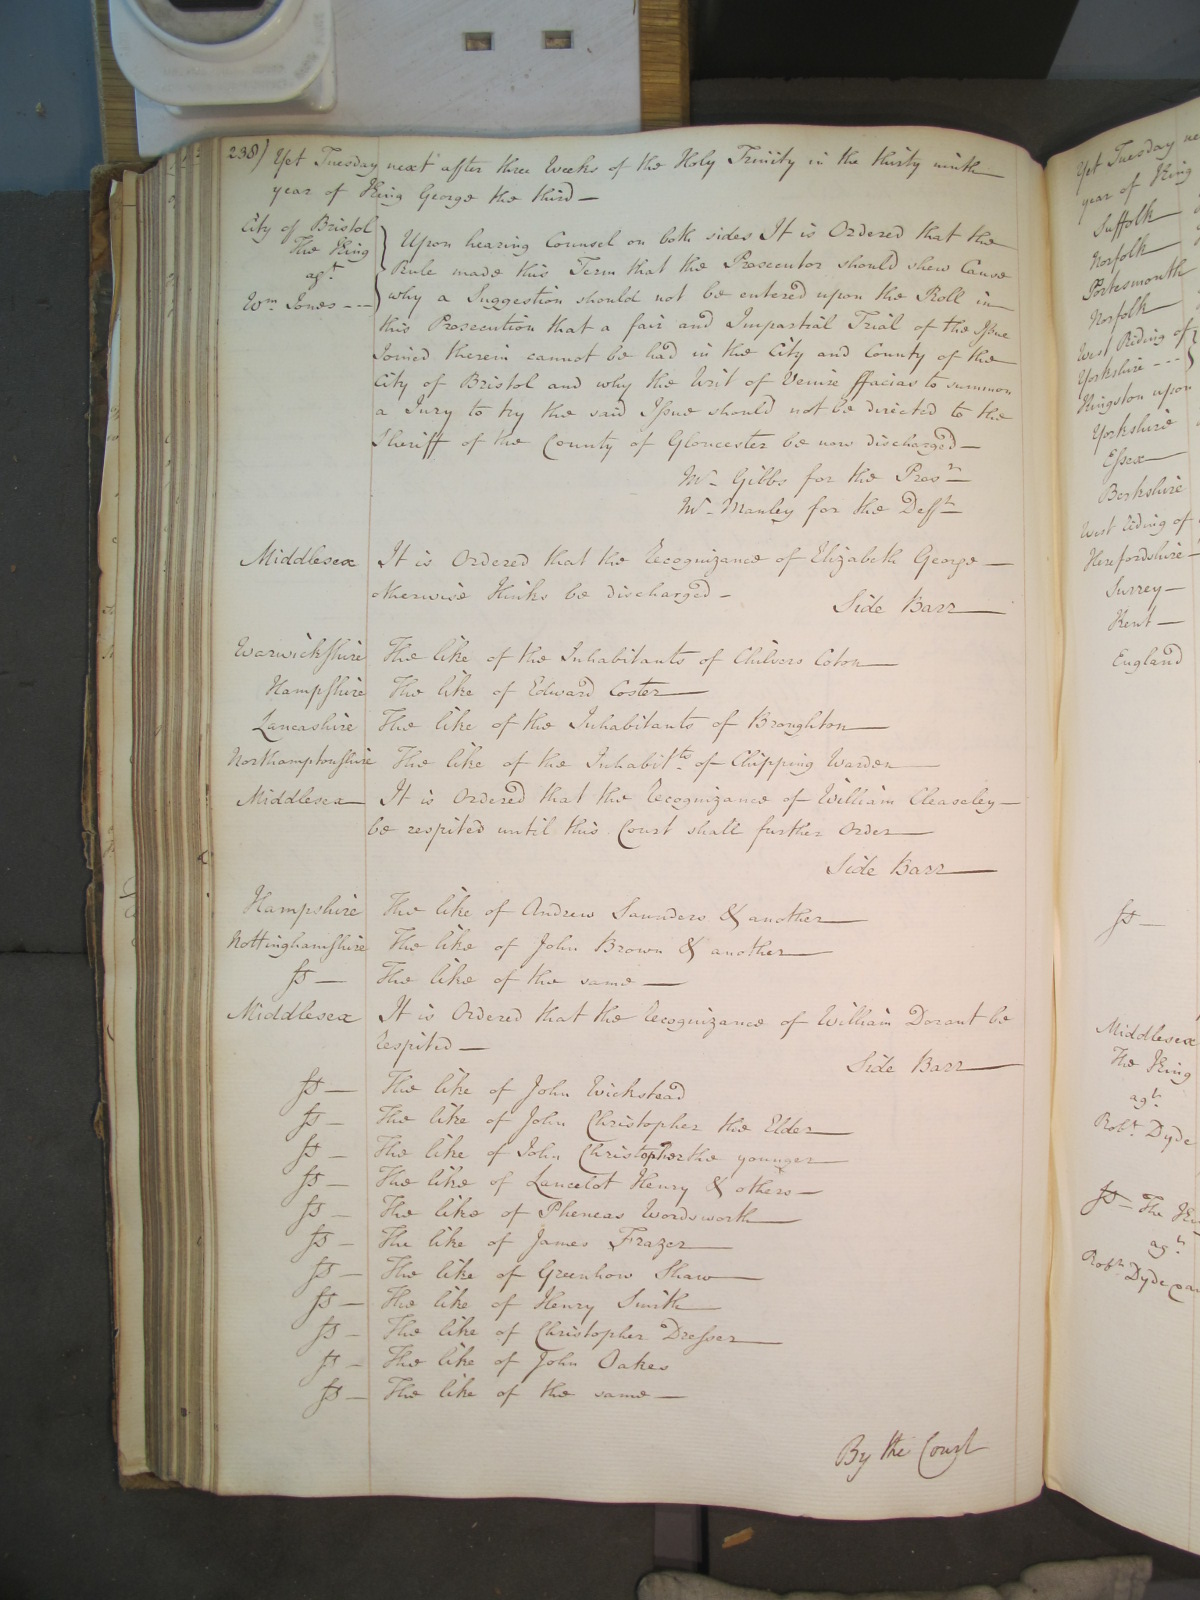 238) Yet Tuesday next after three Weeks of the Holy Trinity in the thirty ninth
year of King George the third —
City of Bristol
The King
agt.
Wm. Jones --
Upon hearing Counsel on both sides It is Ordered that the
Rule made this Term that the Prosecutor should shew Cause
why a Suggestion should not be entered upon the Roll in
this Prosecution that a fair and Impartial Trial of the Issue
Joined therein cannot be had in the City and County of the
City of Bristol and why the Writ of Venire ffacias to summon
a Jury to try the said Issue should not be directed to the
Sheriff of the County of Gloucester be now discharged —
Mr. Gibbs for the Prosn.
Mr. Manley for the Defft.
Middlesex It is Ordered that the Recognizance of Elizabeth George —
otherwise Hinks be discharged —
Side Barr
Warwickshire The like of the Inhabitants of Chilvers Coton
Hampshire The like of Edward Coster
Lancashire The like of the Inhabitants of Broughton
Northamptonshire The like of the Inhabitts. of Chipping Warden
Middlesex It is Ordered that the Recognizance of William Cleaseley —
be respited until this Court shall further Order
Side Barr
Hampshire The like of Andrew Saunders & another
Nottinghamshire The like of John Brown & another
ss — The like of the same —
Middlesex It is Ordered that the Recognizance of William Dorant be
respited —
Side Barr
ss — The like of John Wickstead
ss — The like of John Christopher the Elder
ss — The like of John Christopher the younger
ss — The like of Lancelot Henry & others —
ss — The like of Pheneas Wordsworth
ss — The like of James Frazer
ss — The like of Greenhow Shaw
ss — The like of Henry Smith
ss — The like of Christopher Dresser
ss — The like of John Oakes
ss — The like of the same —
By the Court
Yet Tuesday
year of King
Suffolk
Norfolk
Portesmouth
Norfolk
West Riding of
Yorkshire ---
Kingston upon
Yorkshire
Essex
Berkshire
West Riding of
Herefordshire
Surrey —
Kent —
England
ss —
Middlesex
The King
agt.
Robt. Dyde
ss — The
agt.
Robt. Dyde